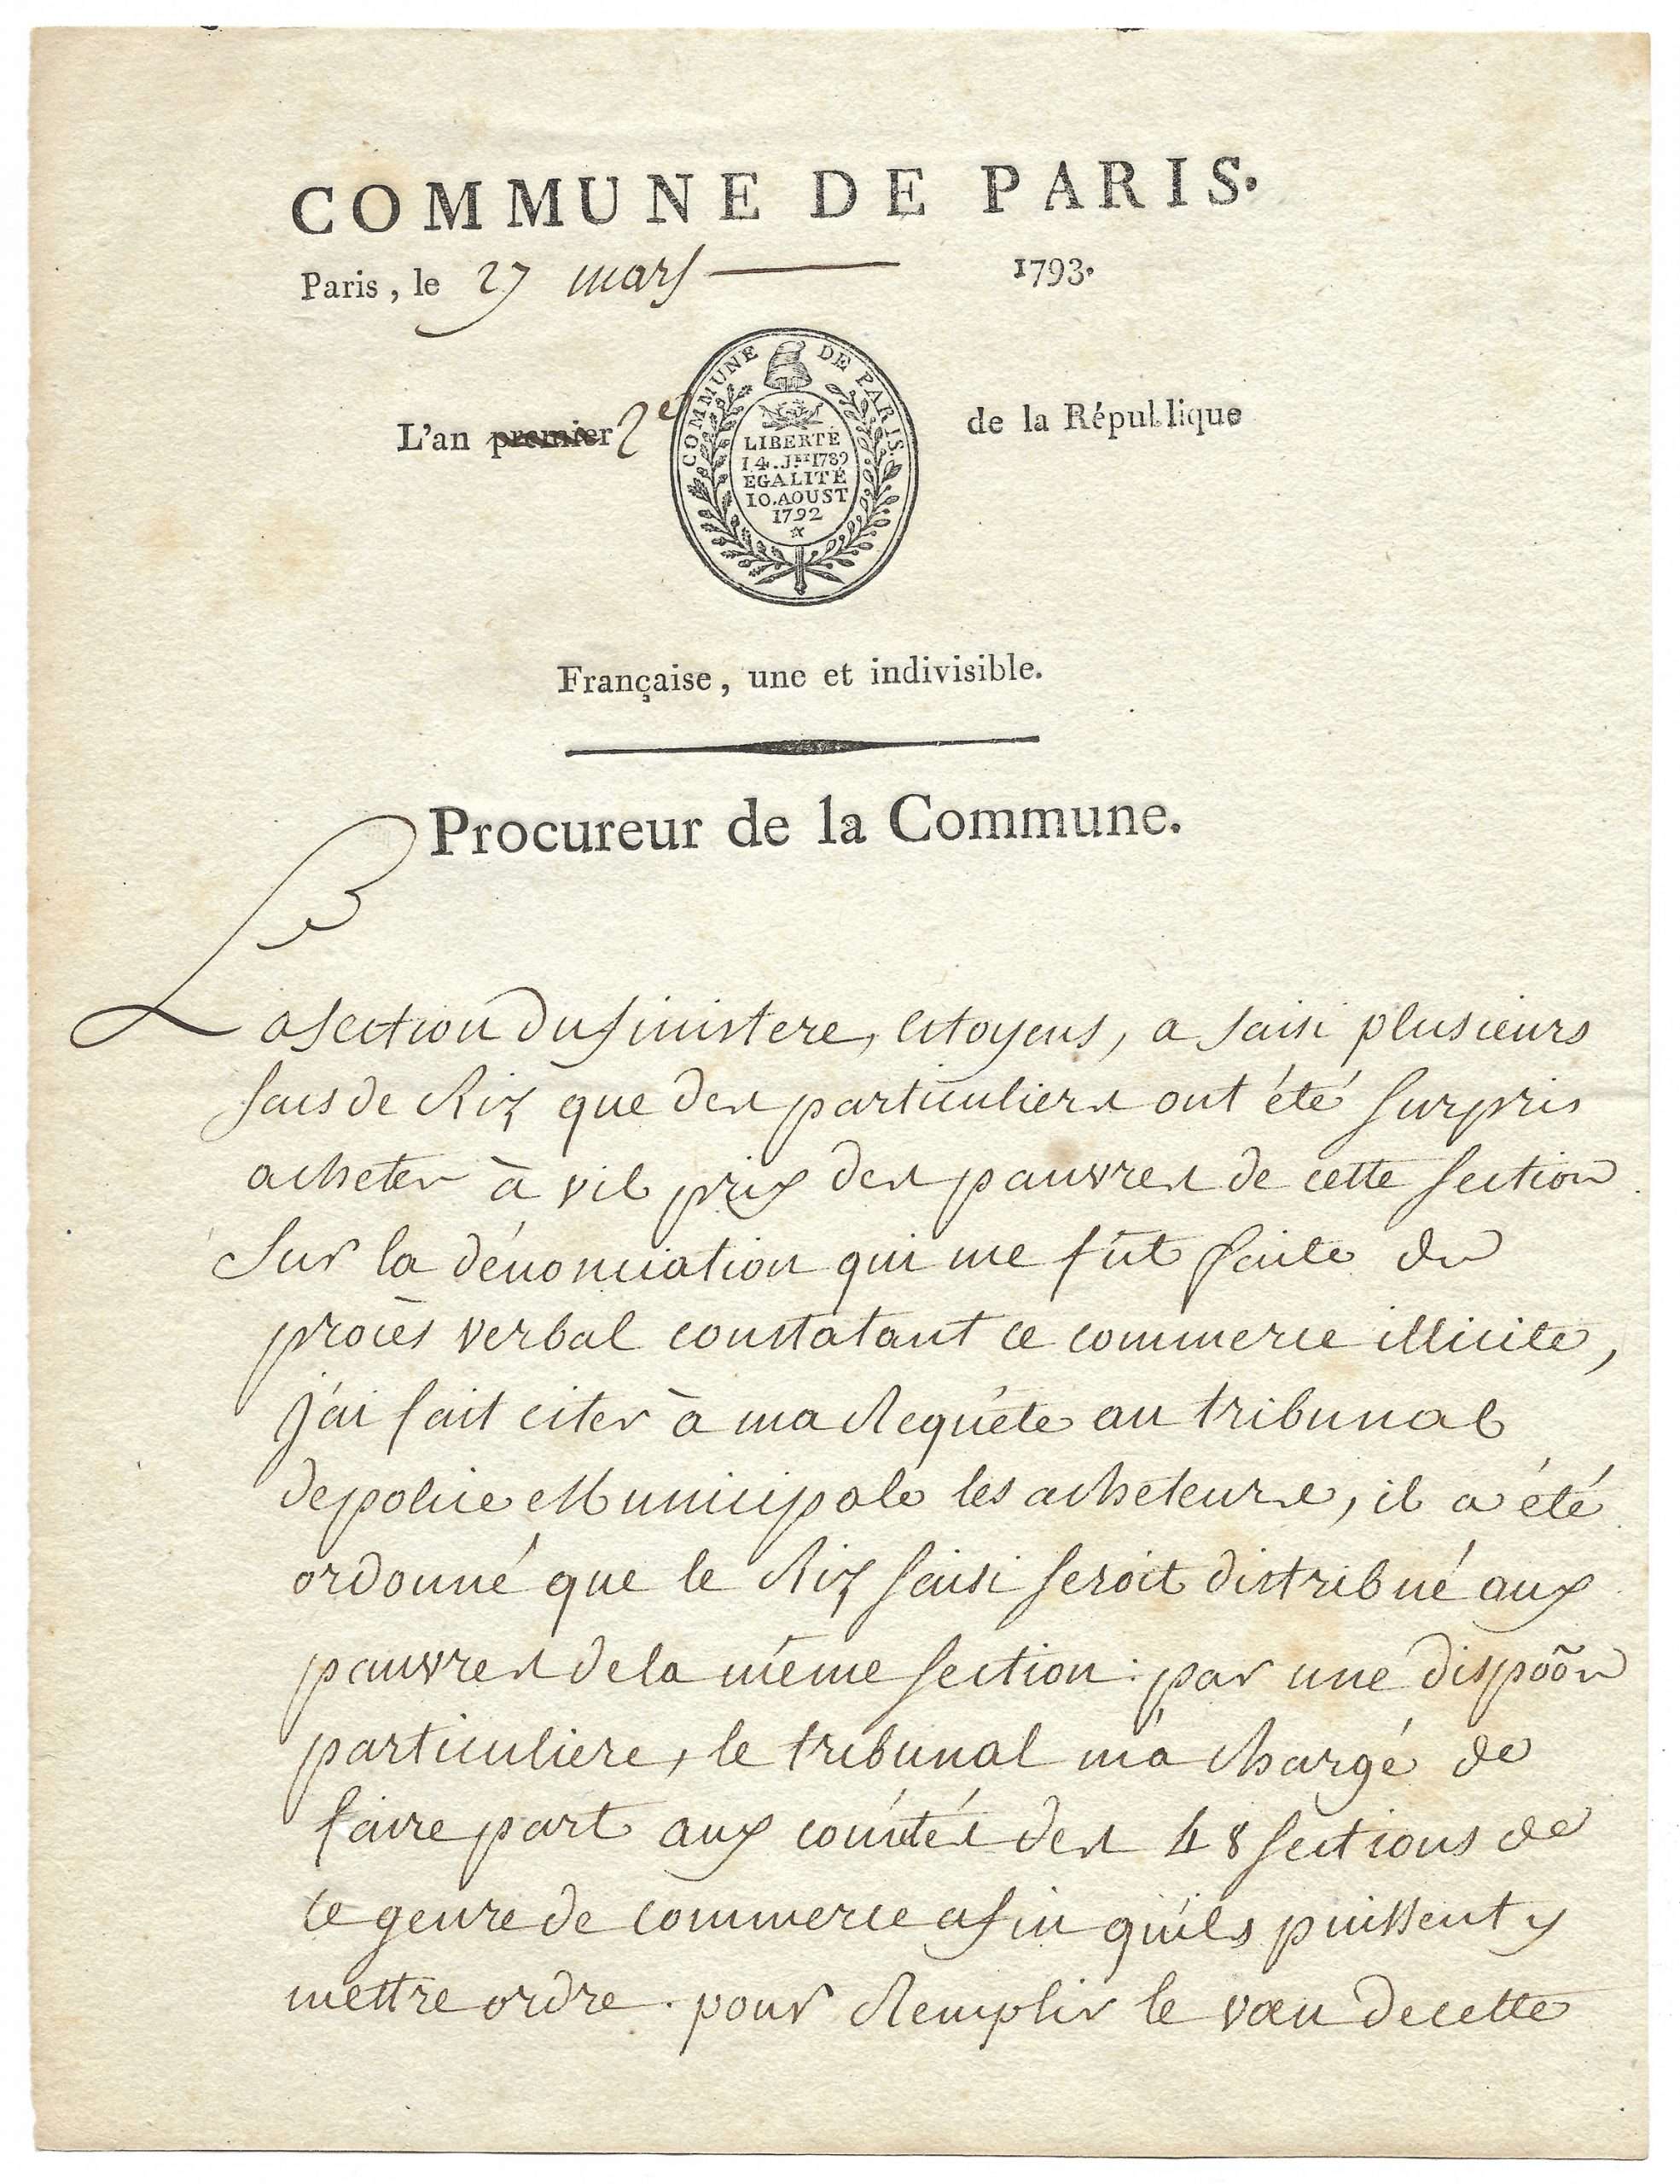 COMMUNE DE PARIS.
Paris, le 27 mars 1793.
L'an premier 2e de la République
COMMUNE DE PARIS.
LIBERTÉ
14. Jet 1789
ÉGALITÉ
10. AOUST
1792
Française, une et indivisible.
Procureur de la Commune.
La section du finistere, citoyens, a saisi plusieurs
sacs de Riz que des particuliers ont été surpris
acheter à vil prix des pauvres de cette section
Sur la dénonciation qui me fut faite du
procès verbal constatant ce commerce illicite,
j'ai fait citer à ma Requête au tribunal
de police Municipale les acheteurs, il a été
ordonné que le Riz saisi seroit distribué aux
pauvres de la même section : par une dispõon
particuliere, le tribunal m'a chargé de
faire part aux comités des 48 sections de
ce genre de commerce afin qu'ils puissent y
mettre ordre. pour Remplir le vœu de cette